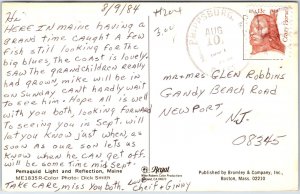 8/9/84
Hi
HERE IN MAINE HAVING A
GRAND TIME, CAUGHT A FEW
FISH STILL LOOKING FOR THE
BIG BLUES, THE COAST IS LOVELY.
SAW THE GRANDCHILDREN REALLY
HAD GROWN, MIKE WILL BE IN
ON SUNDAY CAN'T HARDLY WAIT
TO SEE HIM. HOPE ALL IS WELL
WITH YOU BOTH, LOOKING FORWARD
TO SEEING YOU IN SEPT. WILL
LET YOU KNOW JUST WHEN, AS
SOON AS OUR SON LETS US
KNOW WHEN HE CAN GET OFF.
WILL BE SOME TIME MID SEPT.
Pemaquid Light and Reflection, Maine
ME1835R-Color Photo: Dick Smith
TAKE CARE, MISS YOU BOTH.
Chet & Ginny
#1204
3.00
AUG
10
USA 13c
Crazy Horse
MR & MRS GLEN ROBBINS
GANDY BEACH ROAD
NEWPORT,
N.J.
08345
Regal
Published by Bromley & Company, Inc.
Boston, Mass. 02210